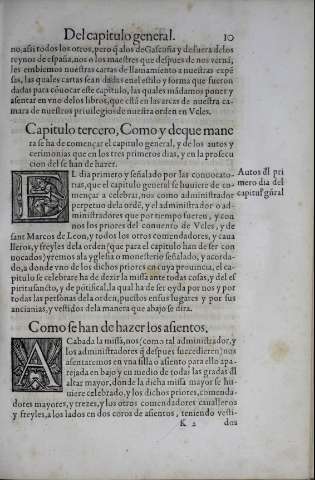 Del capitulo general. 10
no, asi todos los otros, pero q̃ alos de Gascuña y de fuera de los
reynos de españa, nos o los maestres que despues de nos vernã,
les embiemos nuestras cartas de llamamiento a nuestras expẽ
sas, las quales cartas sean dadas en el estilo y forma que fueron
dadas para cõuocar este capitulo, las quales mãdamos poner y
asentar en vno de los libros, que està en las arcas de nuestra ca-
mara de nuestros priuilegios de nuestra orden en Vcles.
Capitulo tercero, Como y de que mane
ra se ha de començar el capitulo general, y de los autos y
cerimonias que en los tres primeros dias, y en la prosecu
cion del se han de hazer.
EL dia primero y señalado por las conuocato-
rias, que el capitulo general se huuiere de co-
mençar a celebrar, nos como administrador
perpetuo dela ordẽ, y el administrador o ad-
ministradores que por tiempo fueren, y con
nos los priores del conuento de Vcles, y de
sant Marcos de Leon, y todos los otros comendadores, y caua
lleros, y freyles dela orden (que para el capitulo han de ser con
uocados) yremos ala yglesia o monesterio señalado, y acorda-
do, a donde vno de los dichos priores en cuya prouincia, el ca-
pitulo se celebrare ha de dezir la missa ante todas cosas, y del es
piritu sancto, y de põtifical, la qual ha de ser oyda por nos y por
todas las personas dela orden, puestos en sus lugares y por sus
ancianias, y vestidos dela manera que abaxo se dira.
Autos dl pri
mero dia del
capitul gñral
Como se han de hazer los asientos.
ACabada la missa, nos (como tal administrador, y
los administradores q̃ despues succedieren) nos
asentaremos en vna silla o asiento para ello apa-
rejada en baxo y en medio de todas las gradas dl
altar mayor, donde la dicha missa mayor se hu-
uiere celebrado, y los dichos priores, comenda-
dores mayores, y trezes, y los otros comendadores caualleros
y freyles, a los lados en dos coros de asientos, teniendo vesti-
K 2 dos